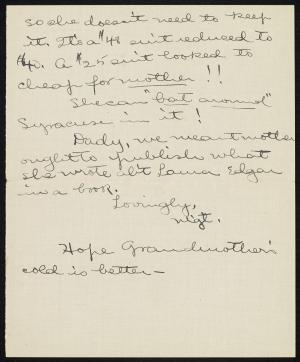 so she doesn't need to keep
it. It's a $48 suit reduced to
$40. A $25 suit looked to
cheap for mother!!
She can "bat around"
Syracuse in it!
Dady, we meant mother
ought to publish what
she wrote ab't Laura Edgar
in a book.
Lovingly,
Hope Grandmother's
cold is better—